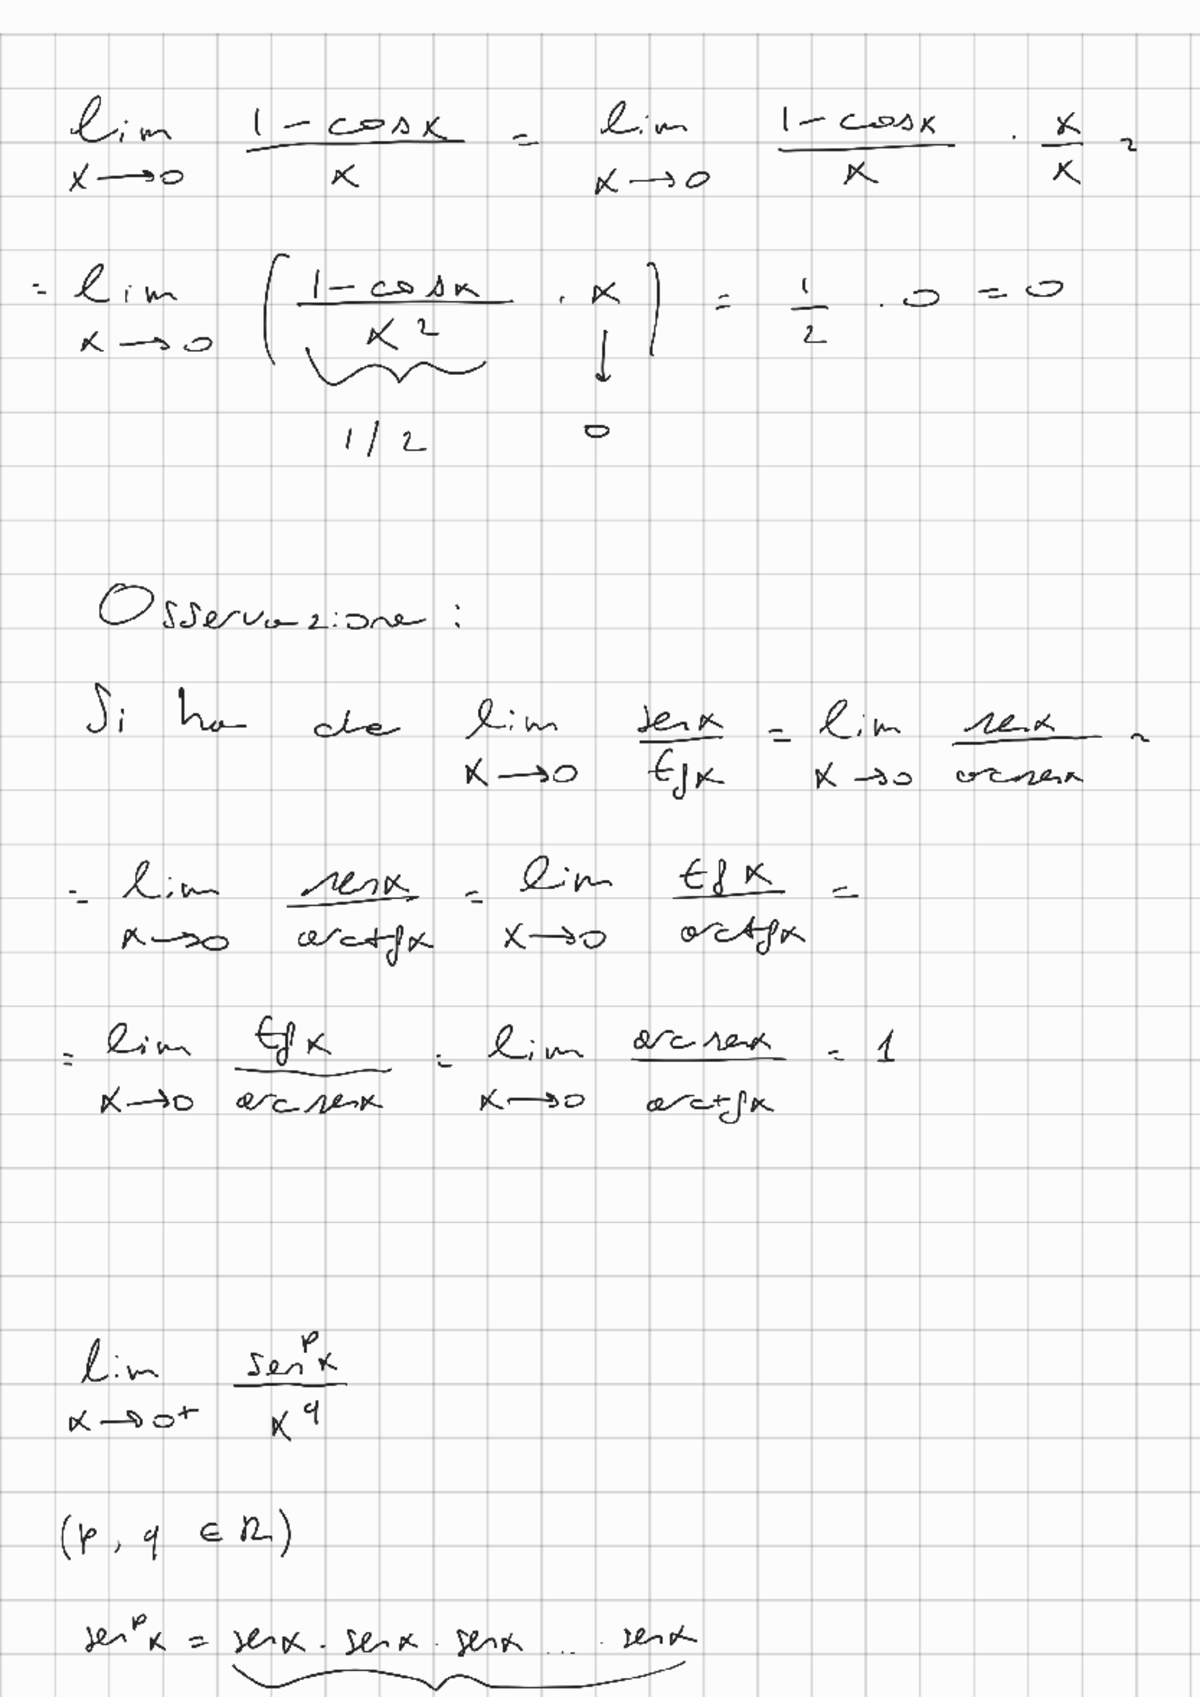 lim x→0 (1-cosx)/x = lim x→0 (1-cosx)/x · x/x =
= lim x→0 ( (1-cosx)/x² · x ) = 1/2 · 0 = 0
1/2 0
Osservazione:
Si ha che lim x→0 senx/tgx = lim x→0 senx/arcsenx =
= lim x→0 senx/arctgx = lim x→0 tgx/arctgx =
= lim x→0 tgx/arcsenx = lim x→0 arcsenx/arctgx = 1
lim x→0⁺ senᵖx/x^q
(p, q ∈ ℝ)
senᵖx = senx · senx · senx ... · senx